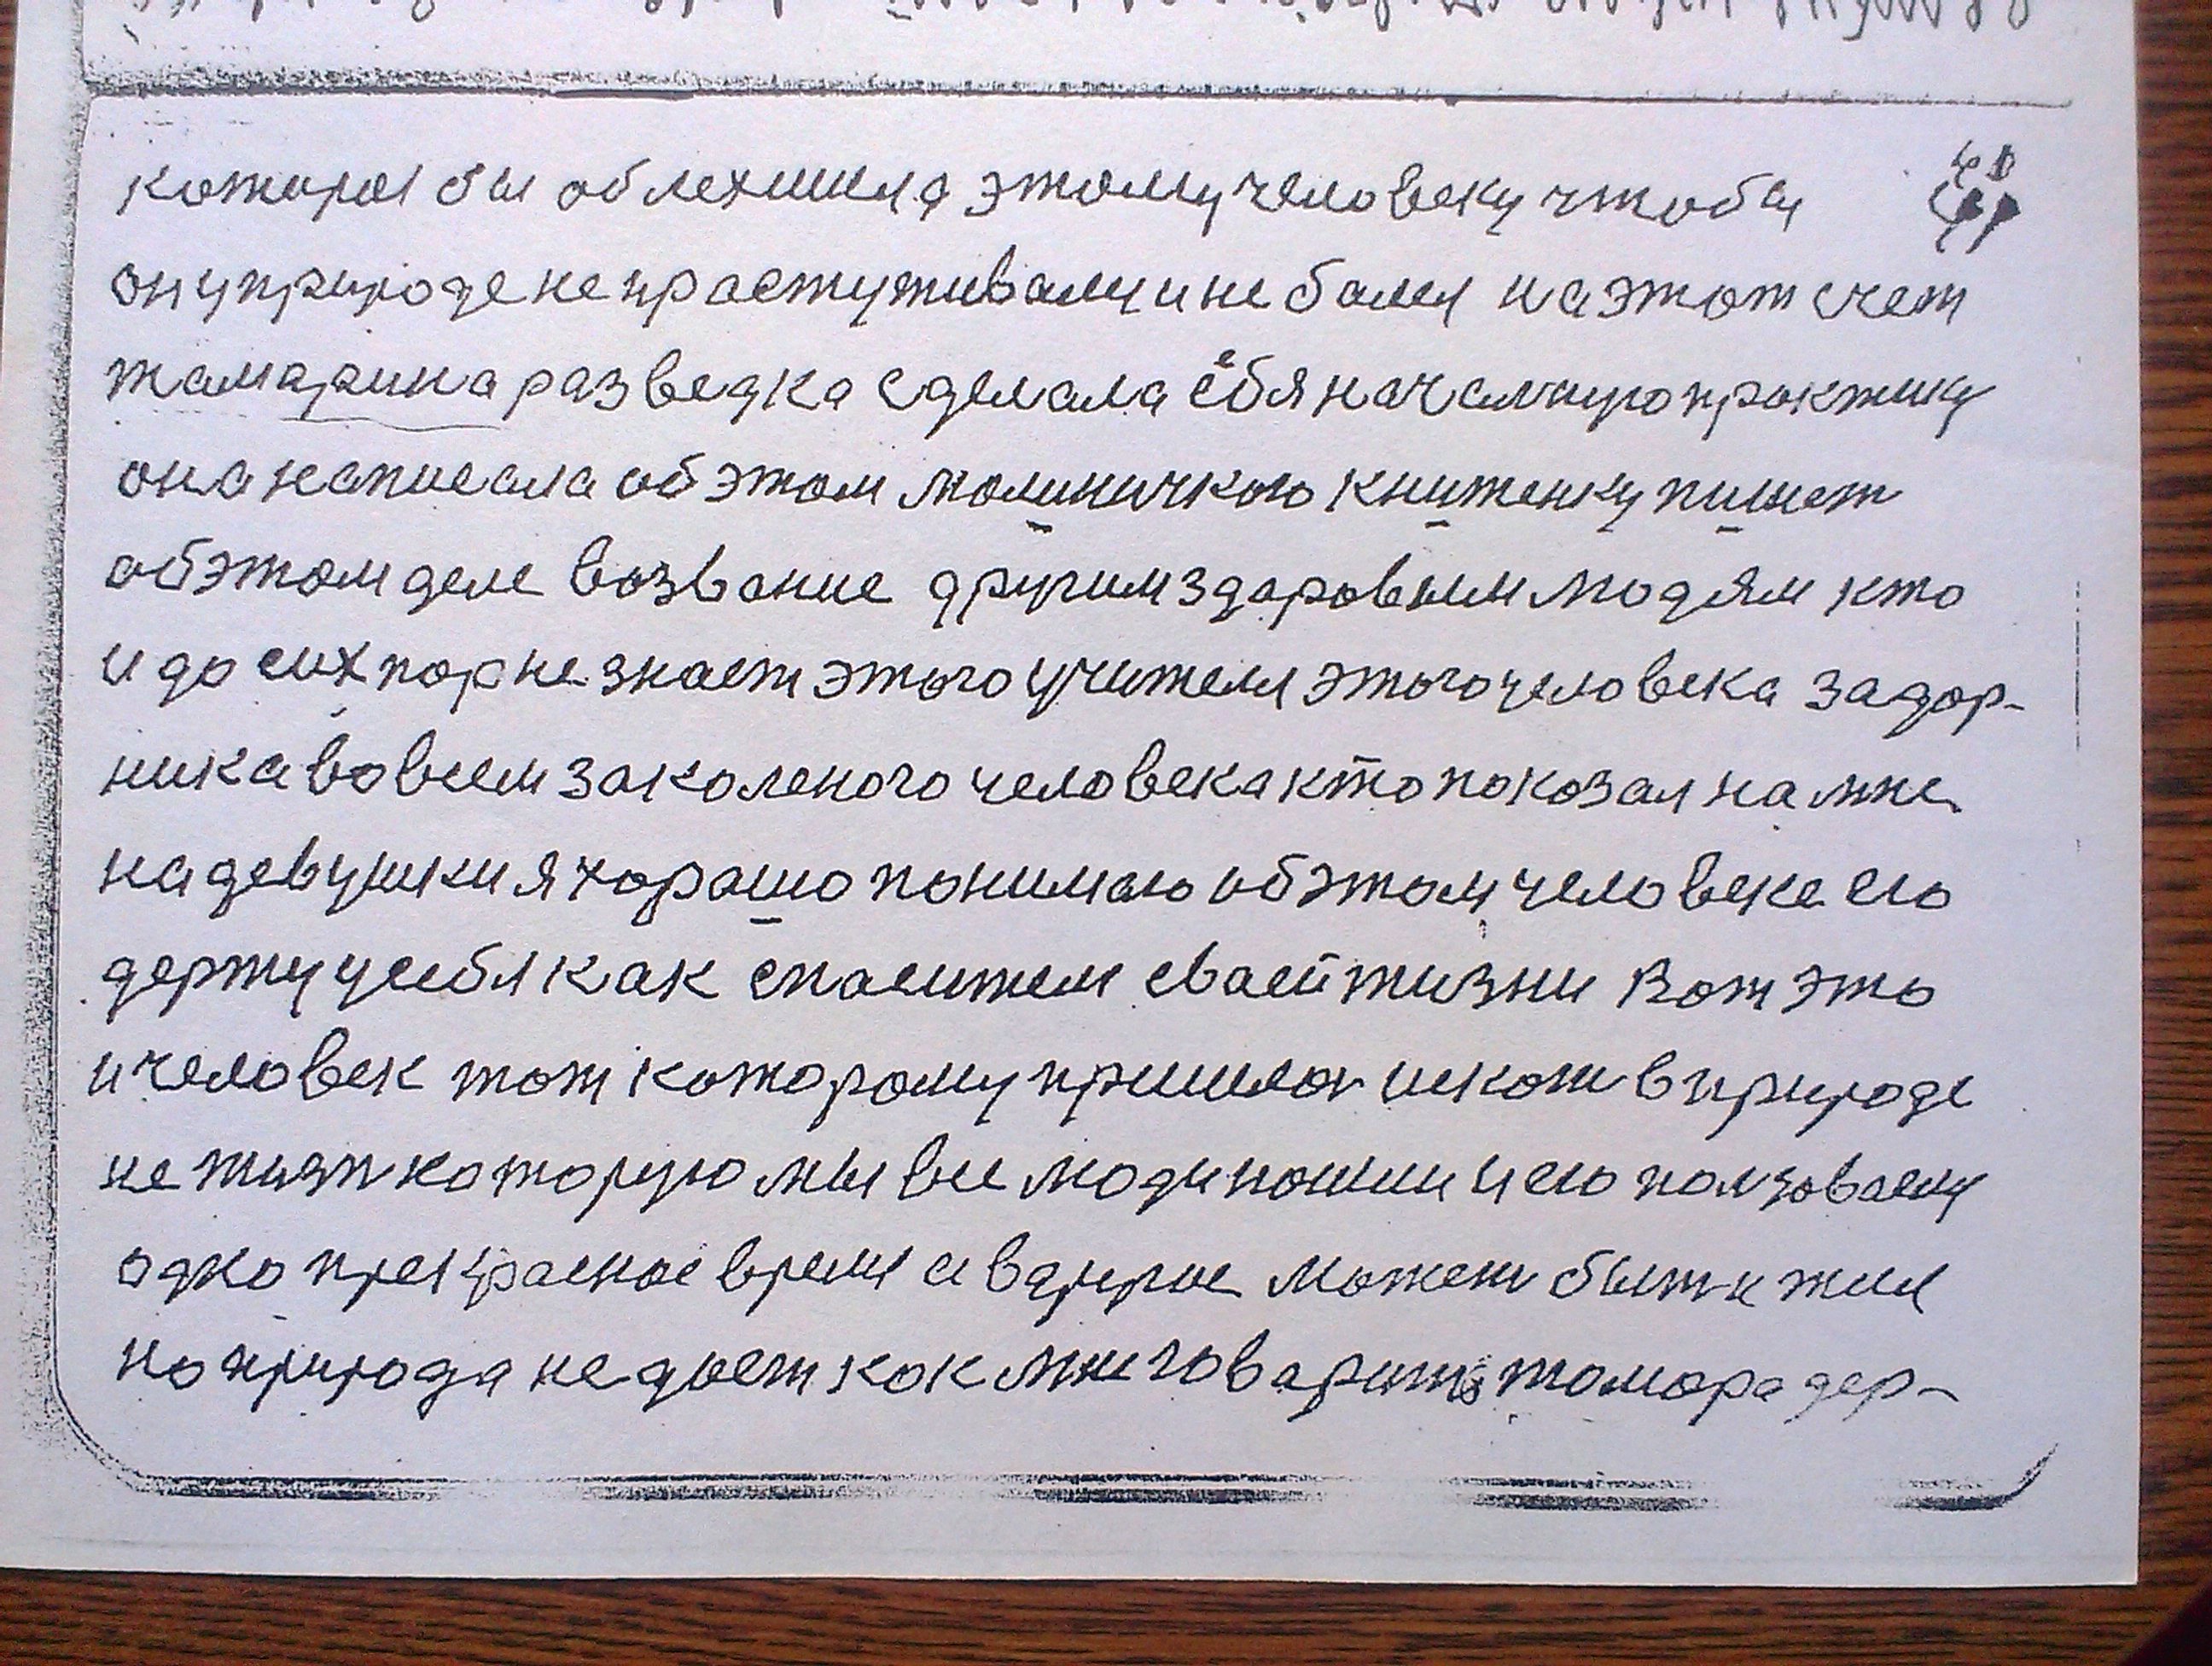 которая бы облехшила этому человеку чтобы
он у природе не прастуживалси и не балел на этот счет
тамарина разведка сделала себя началную практику
она написала об этом малиничкою книженку пишет
об этом деле возвание другим здаровым людям кто
и до сих пор не знает этого учителя этого человека задор-
ника во всем закаленого человека кто показал на мне
на девушки я хорашо понимаю об этом человеке его
держу у себя как спасителя сваей жизни Вот это
и человек тот каторому пришлос искат в природе
не жизн каторую мы все люди нашли и ею ползоваемся
одно прекрасное время а в другое может быть и жил
но природа не дает как мне говарит тамара дер-